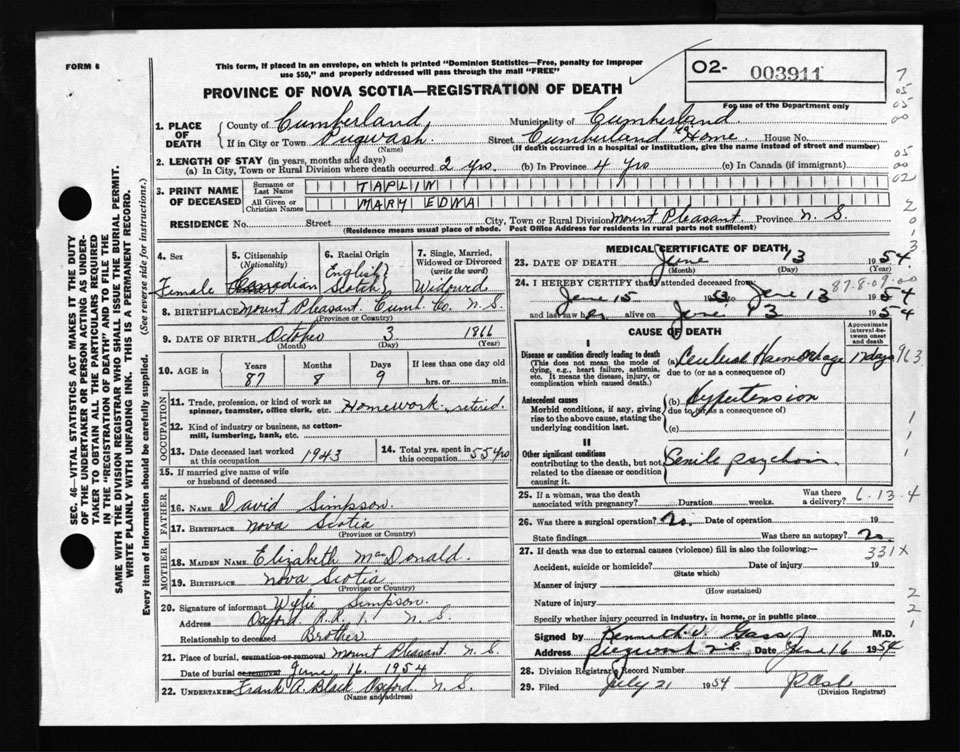 FORM 6
This form, if placed in an envelope, on which is printed "Dominion Statistics—Free, penalty for improper
use $50," and properly addressed will pass through the mail "FREE"
02- 003911
For use of the Department only
PROVINCE OF NOVA SCOTIA—REGISTRATION OF DEATH
1. PLACE OF DEATH
County of Cumberland Municipality of Cumberland
If in City or Town Pugwash Street Cumberland Co Home. House No.
(Name) (If death occurred in a hospital or institution, give the name instead of street and number)
2. LENGTH OF STAY (in years, months and days)
(a) In City, Town or Rural Division where death occurred 2 yrs. (b) In Province 4 yrs (c) In Canada (if immigrant)
3. PRINT NAME OF DECEASED
Surname or Last Name TAPLIN
All Given or Christian Names MARY EDNA
RESIDENCE No. Street City, Town or Rural Division Mount Pleasant. Province N. S.
(Residence means usual place of abode. Post Office Address for residents in rural parts not sufficient)
4. Sex Female
5. Citizenship (Nationality) Canadian
6. Racial Origin English Scotch
7. Single, Married, Widowed or Divorced (write the word) Widowed
8. BIRTHPLACE Mount Pleasant. Cumb. Co. N. S.
(Province or Country)
9. DATE OF BIRTH October 3 1866
(Month) (Day) (Year)
10. AGE in Years Months Days If less than one day old
87 8 9 hrs. or min.
OCCUPATION
11. Trade, profession, or kind of work as spinner, teamster, office clerk, etc. Homework. retired.
12. Kind of industry or business, as cotton-mill, lumbering, bank, etc.
13. Date deceased last worked at this occupation 1943
14. Total yrs. spent in this occupation 55 yrs
15. If married give name of wife or husband of deceased
FATHER
16. NAME David Simpson.
17. BIRTHPLACE Nova Scotia
(Province or Country)
MOTHER
18. MAIDEN NAME Elizabeth MacDonald.
19. BIRTHPLACE Nova Scotia
(Province or Country)
20. Signature of informant Wylie Simpson.
Address Oxford R.R. 1. N. S.
Relationship to deceased Brother
21. Place of burial, cremation or removal Mount Pleasant. N. S.
Date of burial or removal June 16. 1954
22. UNDERTAKER Frank A. Black Oxford. N. S.
(Name and address)
MEDICAL CERTIFICATE OF DEATH
23. DATE OF DEATH June 13 1954.
(Month) (Day) (Year)
87-8-09-00
24. I HEREBY CERTIFY that I attended deceased from
June 15 1953 to June 13 1954
and last saw her alive on June 13 1954
CAUSE OF DEATH
Approximate interval between onset and death
I
Disease or condition directly leading to death
(This does not mean the mode of dying, e.g., heart failure, asthenia, etc. It means the disease, injury, or complication which caused death.)
(a) Cerebral Haemorrhage 17 days
due to (or as a consequence of)
Antecedent causes
Morbid conditions, if any, giving rise to the above cause, stating the underlying condition last.
(b) Hypertension
due to (or as a consequence of)
(c)
II
Other significant conditions
contributing to the death, but not related to the disease or condition causing it.
Senile psychosis.
25. If a woman, was the death associated with pregnancy? Duration weeks. Was there a delivery? 6.13.4
26. Was there a surgical operation? No. Date of operation 19
State findings Was there an autopsy? No.
27. If death was due to external causes (violence) fill in also the following:— 331X
Accident, suicide or homicide? Date of injury 19
(State which)
Manner of injury
(How sustained)
Nature of injury
Specify whether injury occurred in industry, in home, or in public place
Signed by Kenneth V. Gass M.D.
Address Date June 16 1954
28. Division Registrar's Record Number
29. Filed July 21 1954
(Division Registrar)
SEC. 46—VITAL STATISTICS ACT MAKES IT THE DUTY
OF THE UNDERTAKER OR PERSON ACTING AS UNDER-
TAKER TO OBTAIN ALL THE PARTICULARS REQUIRED
IN THE "REGISTRATION OF DEATH" AND TO FILE THE
SAME WITH THE DIVISION REGISTRAR WHO SHALL ISSUE THE BURIAL PERMIT.
WRITE PLAINLY WITH UNFADING INK. THIS IS A PERMANENT RECORD.
Every item of information should be carefully supplied. (See reverse side for instructions.)